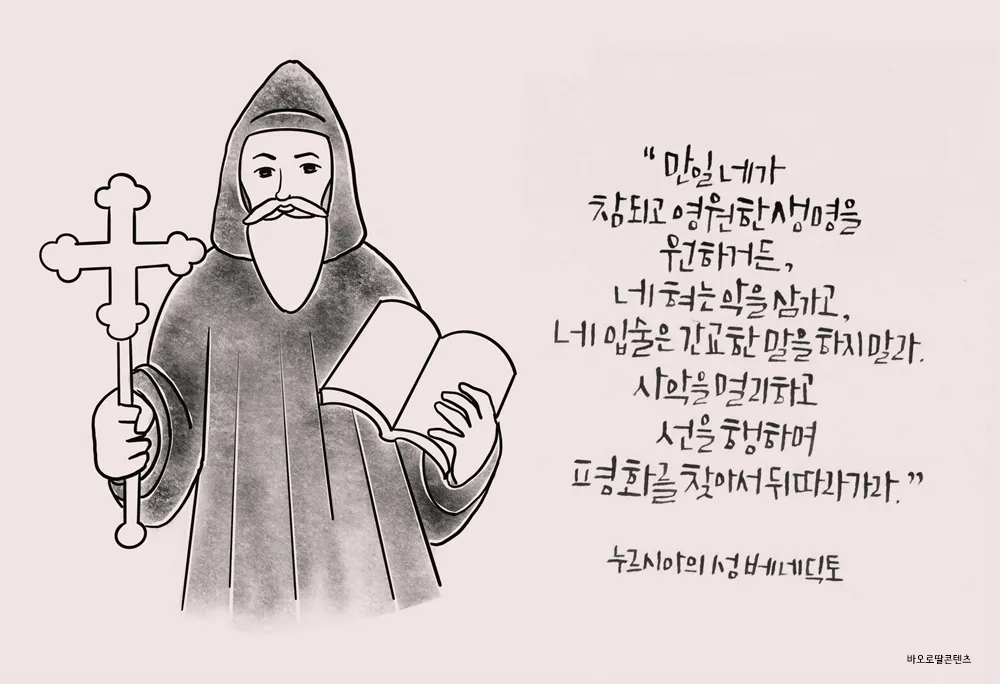 “만일 네가
참되고 영원한 생명을
원하거든,
네 혀는 악을 삼가고,
네 입술은 간교한 말을 하지 말라.
사악을 멀리하고
선을 행하며
평화를 찾아서 뒤따라가라.”
누르시아의 성 베네딕토
바오로딸콘텐츠